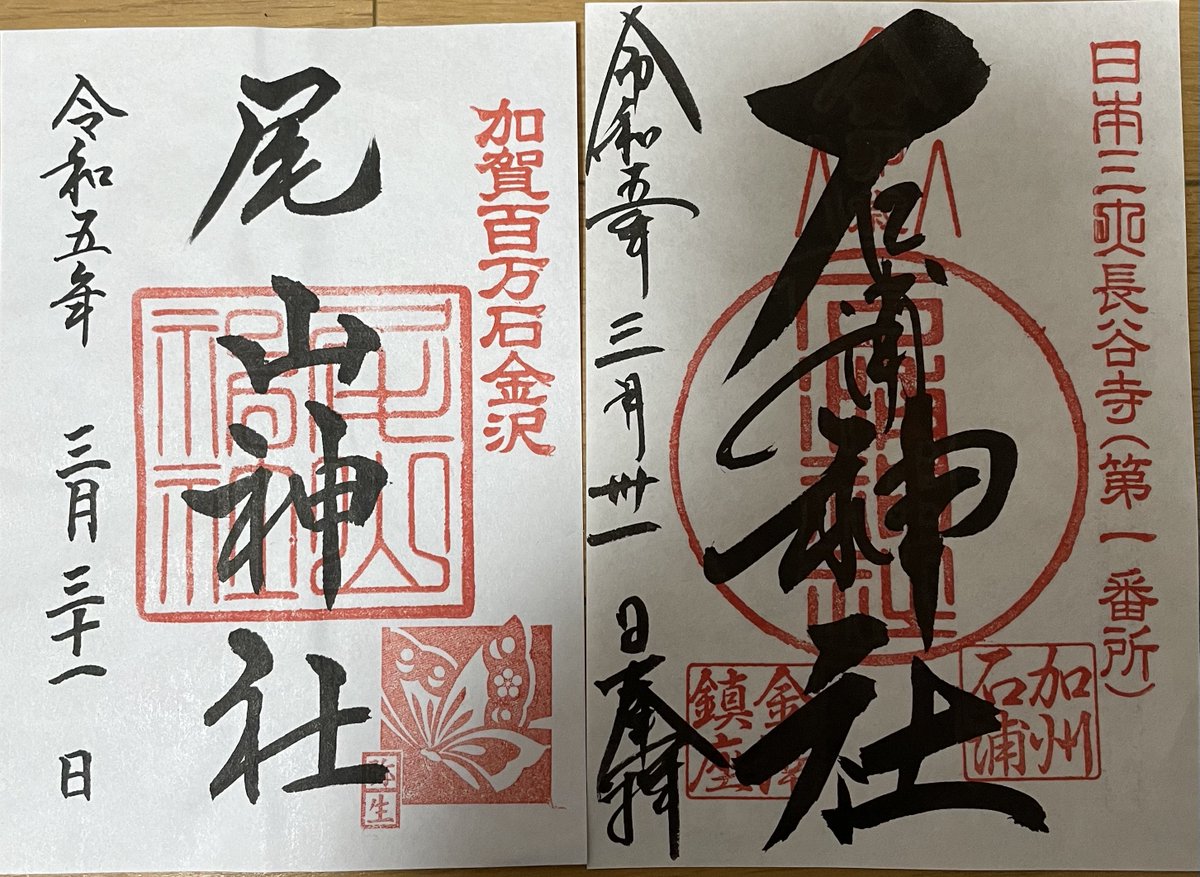 加賀百万石金沢
尾山神社
尾山神社
弥生
令和五年 三月 三十一 日
日本三大長谷寺(第一番所)
石浦神社
加州
石浦
鎮座
令和五年 三月 卅一 日 奉拝